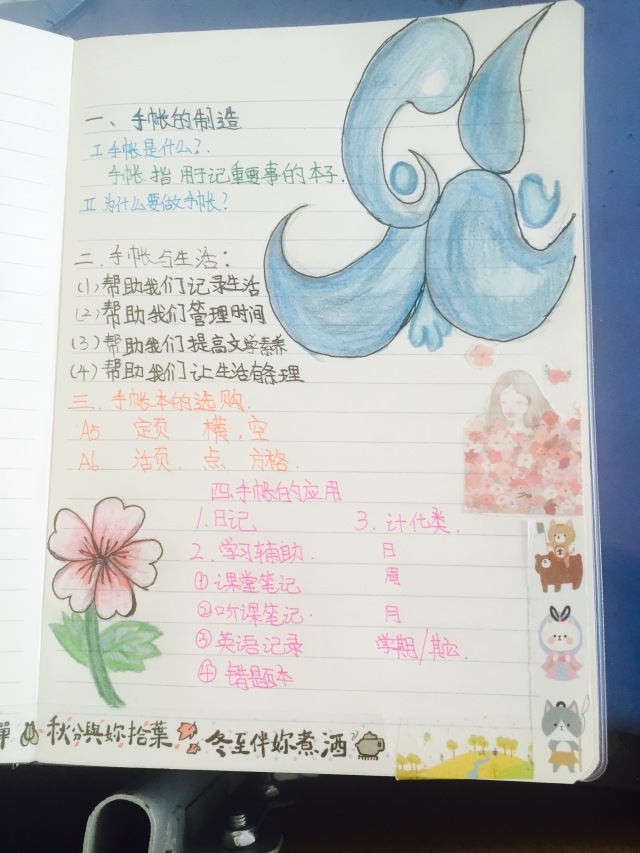 一、手帐的制造
I 手帐是什么?
手帐 指 用于记重要事的本子.
II 为什么要做手帐?
二、手帐与生活:
(1)帮助我们记录生活
(2)帮助我们管理时间
(3)帮助我们提高文学素养
(4)帮助我们让生活有条理
三、手帐本的选购.
A5 定页 横.空
A6 活页. 点 方格.
四.手帐的应用
1.日记
2.学习辅助.
①课堂笔记
②听课笔记.
③英语记录
④错题本
3.计化类.
日
周
月
学期/其它.
秋分與妳拾葉
冬至伴妳煮酒